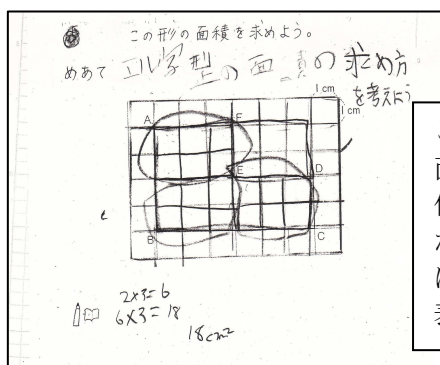 この形の面積を求めよう。
めあて エル字型の面積の求め方
を考えよう
1cm
1cm
A F
E D
B C
2×3=6
6×3=18
18cm²